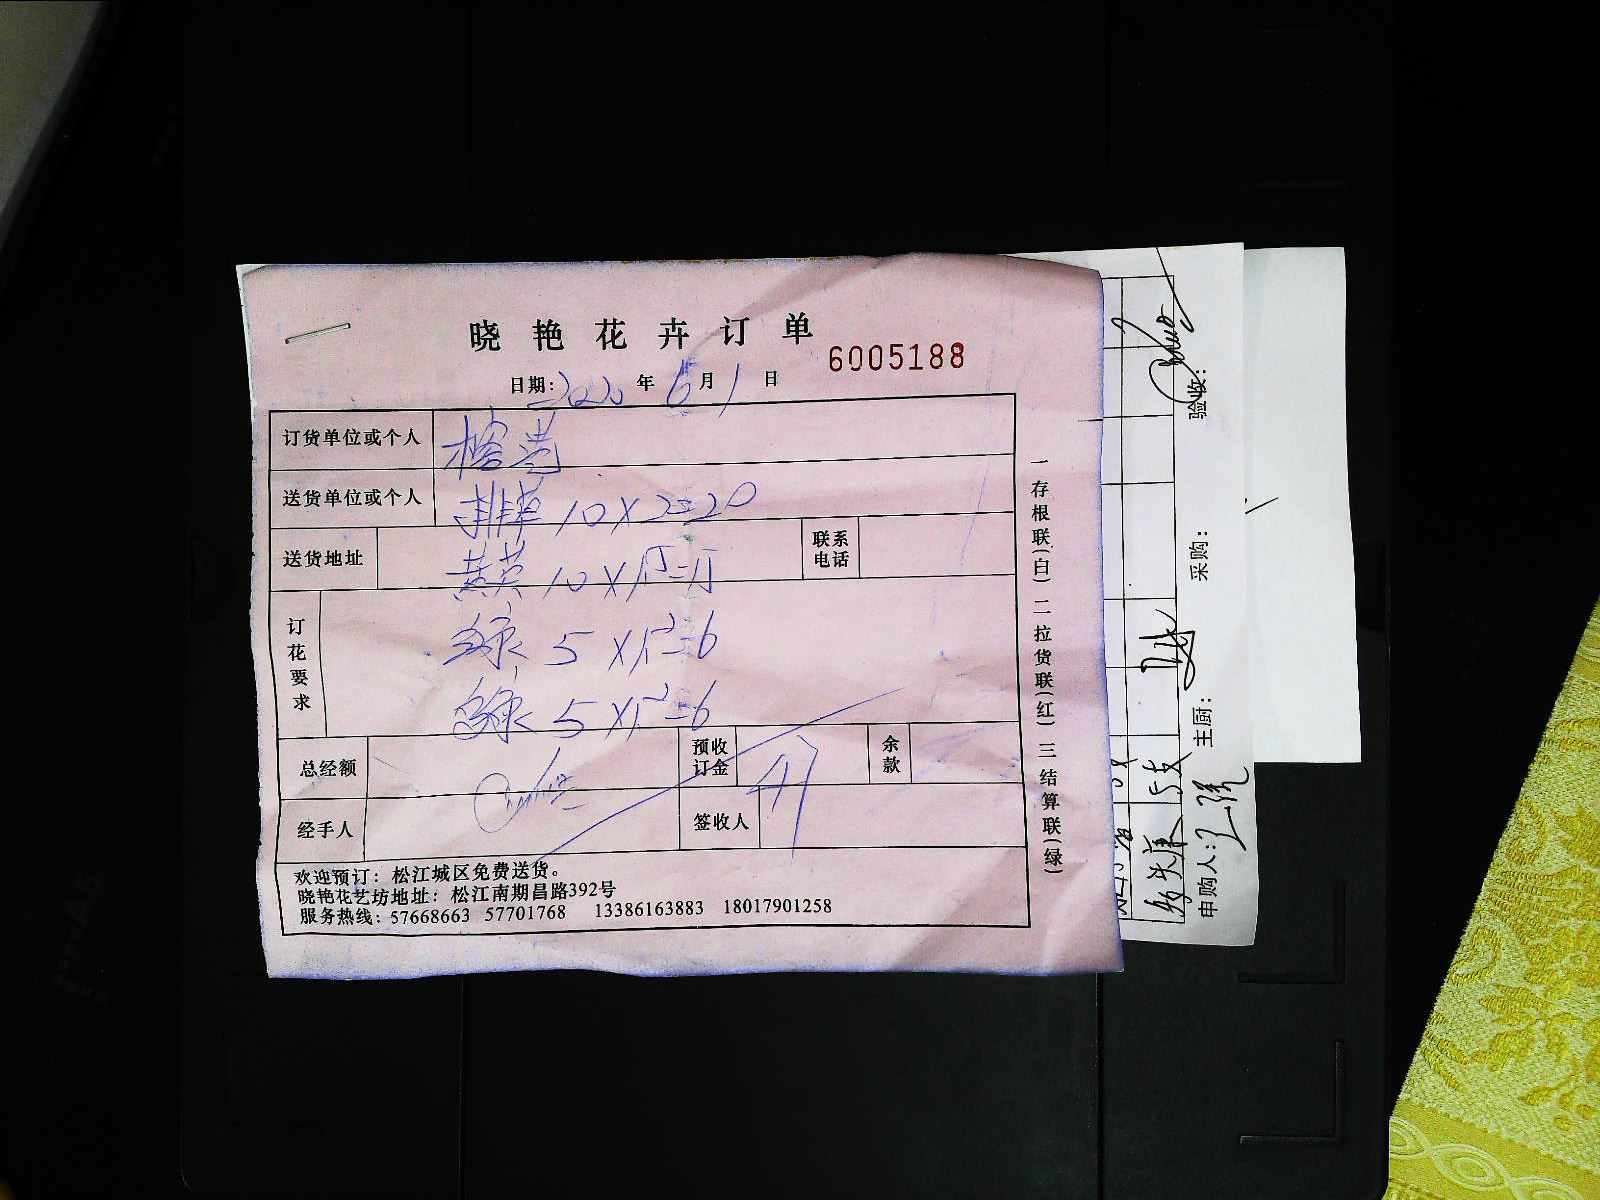 晓艳花卉订单
6005188
日期: 2020年6月1日
订货单位或个人
送货单位或个人 排草 10×2=20
送货地址 黄英 10×1.5=15 联系电话
订花要求
5×1.2=6
5×1.2=6
总经额 预收订金 47 余款
经手人 签收人
欢迎预订: 松江城区免费送货。
晓艳花艺坊地址: 松江南期昌路392号
服务热线: 57668663 57701768 13386163883 18017901258
一存根联(白) 二拉货联(红) 三结算联(绿)
5支
申购人: 主厨: 采购: 验收: